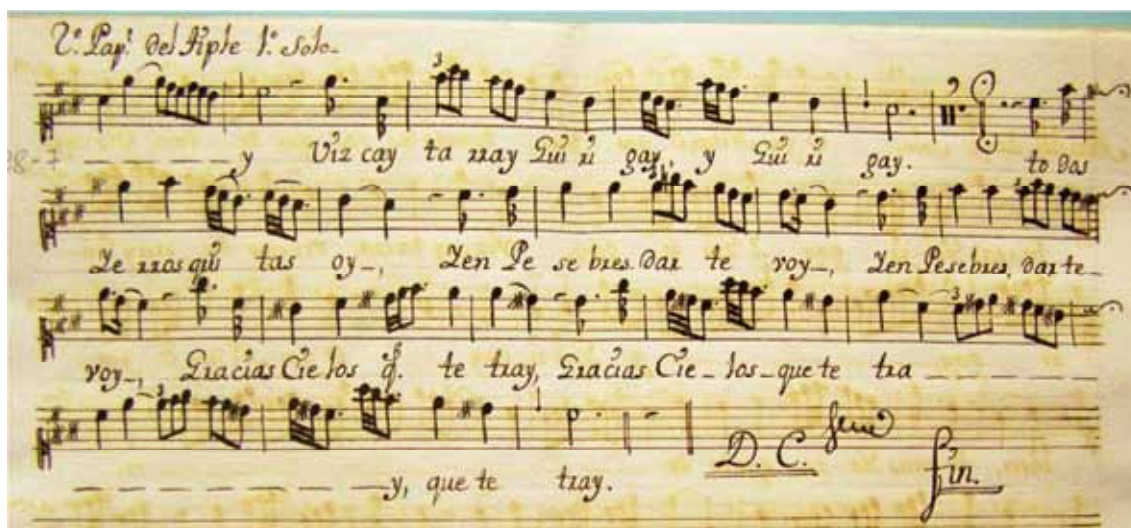 2.º Pap.l Del tiple 1.º Solo-
_ _ _ _ _ _ y Vizcay ta rray Gui ri gay, y Gui ri gay. to das
Ze rros qui tas oy_, Yen Pe se bres. Dar te voy_, Yen Pesebres, Dar te_
voy_, Gracias Cie los q. te tray, Gracias Cie_ los_ que te tra _ _ _ _ _
_ _ _ _ _ _ _ _ y, que te tray.
D. C.
fin.